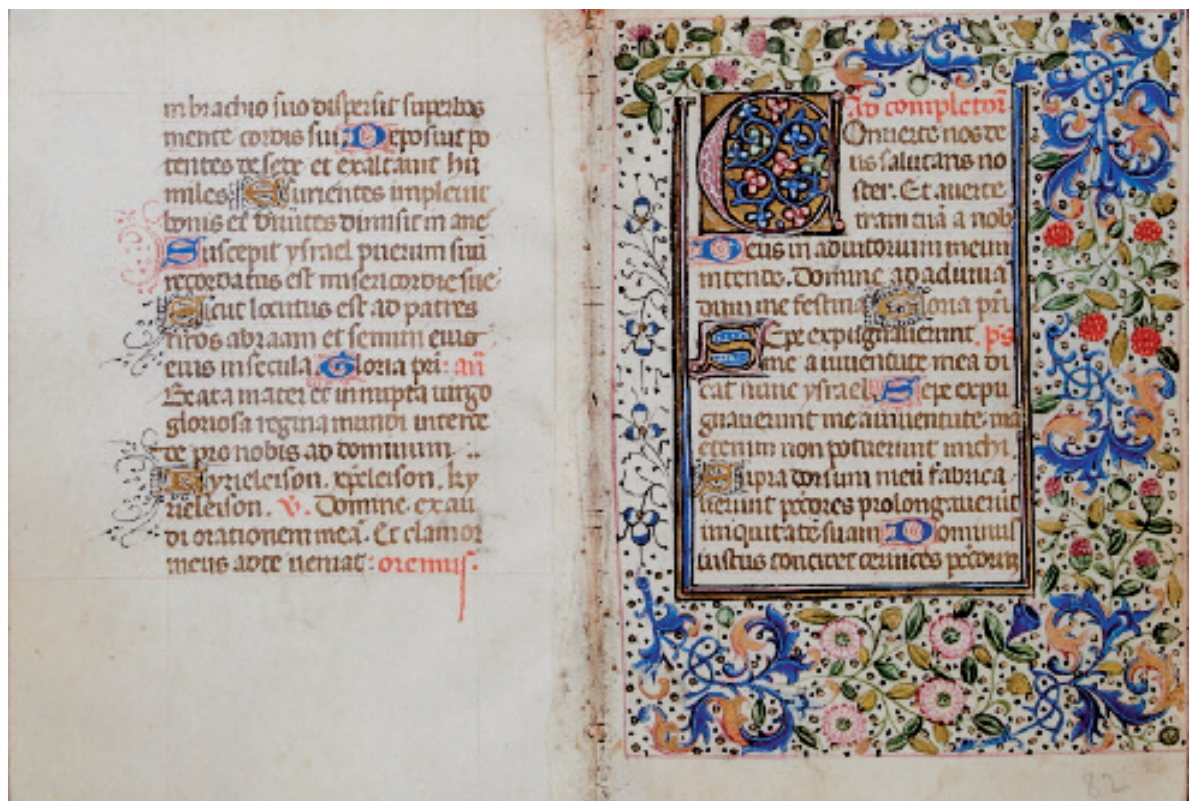 in brachio suo dispersit superbos
mente cordis sui Deposuit po
tentes de sede et exaltauit hu
miles Esurientes impleuit
bonis et diuites dimisit in ane
Suscepit ysrael puerum suū
recordatus est misericordie sue
Sicut locutus est ad patres
nr̄os abraam et semini eius
eius in secula Gloria pr̄i: an̄
Beata mater et innupta uirgo
gloriosa regina mundi interce
de pro nobis ad dominum
Kyrieleison. xp̄eleison. ky
rieleison. v. Domine exau
di orationem meā. Et clamor
meus ad te ueniat: oremus.
Ad completoꝝ
Conuerte nos de
us salutaris no
ster. Et auerte
iram tuā a nob
Deus in adiutorium meum
intende. Domine ad adiuua
dum me festina Gloria pr̄i
Sepe expugnauerunt ps̄
me a iuuentute mea di
cat nunc ysrael Sepe expu
gnauerunt me a iuuentute ma
etenim non potuerunt michi
Supra dorsum meū fabrica
uerunt pctores prolongauerūt
iniquitatē suam Dominus
iustus concidet ceruices pctorū
82